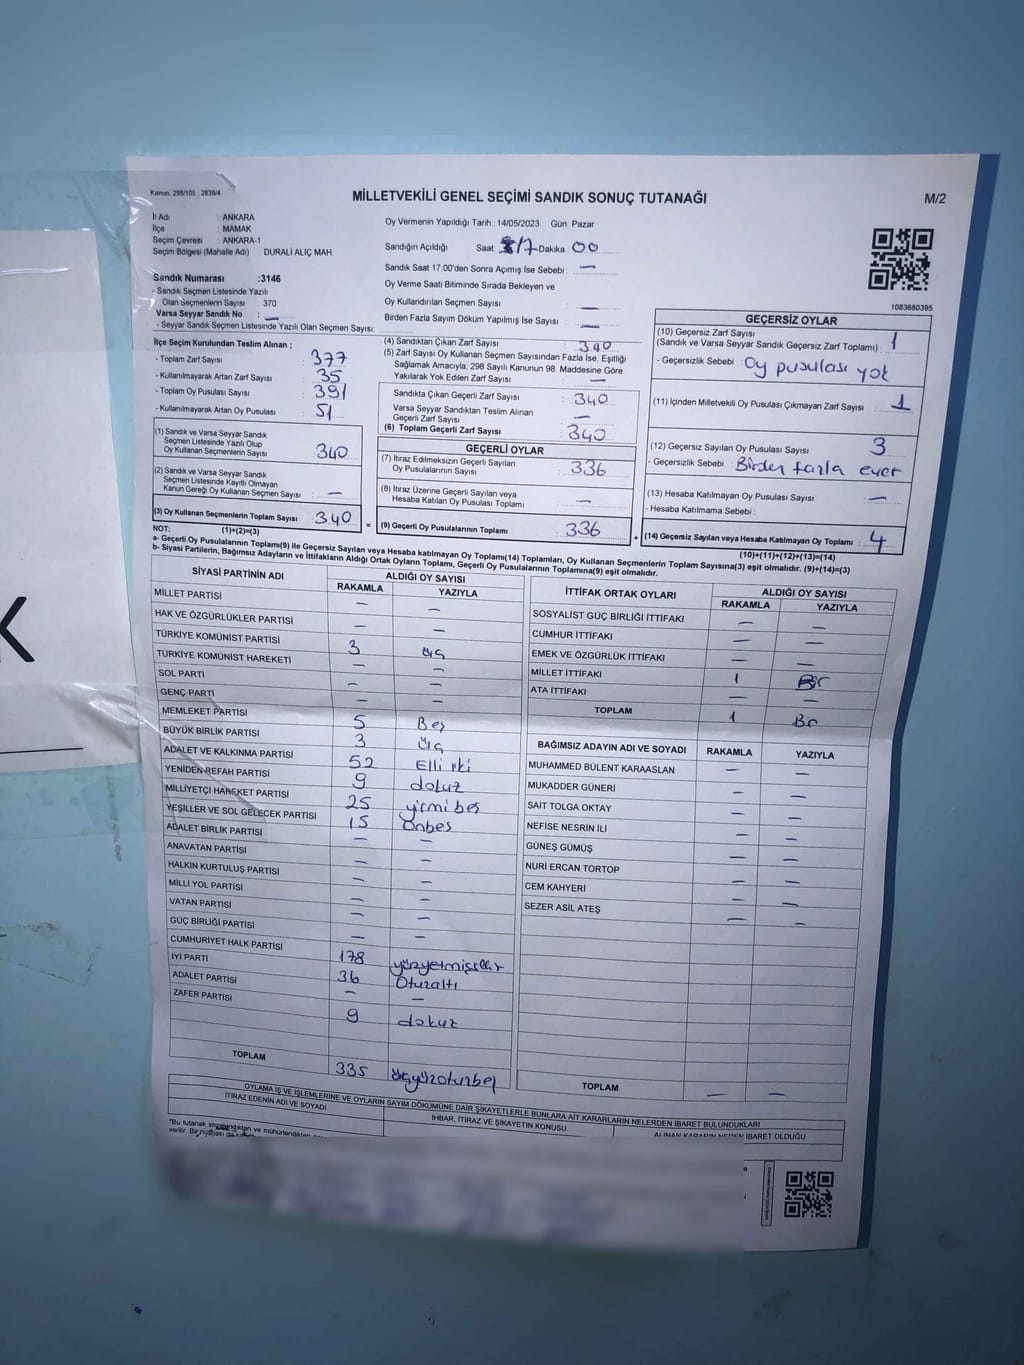 Kanun, 298/105 , 2839/4
MİLLETVEKİLİ GENEL SEÇİMİ SANDIK SONUÇ TUTANAĞI
M/2
İl Adı : ANKARA
İlçe : MAMAK
Seçim Çevresi : ANKARA-1
Seçim Bölgesi (Mahalle Adı) : DURALİ ALIÇ MAH.
Sandık Numarası :3146
- Sandık Seçmen Listesinde Yazılı
Olan Seçmenlerin Sayısı : 370
Varsa Seyyar Sandık No : —
- Seyyar Sandık Seçmen Listesinde Yazılı Olan Seçmen Sayısı:
Oy Vermenin Yapıldığı Tarih : 14/05/2023 Gün: Pazar
Sandığın Açıldığı Saat 17 Dakika : 00
Sandık Saat 17:00'den Sonra Açımış İse Sebebi : —
Oy Verme Saati Bitiminde Sırada Bekleyen ve
Oy Kullandırılan Seçmen Sayısı : —
Birden Fazla Sayım Döküm Yapılmış İse Sayısı : —
1083680395
İlçe Seçim Kurulundan Teslim Alınan ;
- Toplam Zarf Sayısı : 377
- Kullanılmayarak Artan Zarf Sayısı : 35
- Toplam Oy Pusulası Sayısı : 391
- Kullanılmayarak Artan Oy Pusulası : 51
(1) Sandık ve Varsa Seyyar Sandık
Seçmen Listesinde Yazılı Olup
Oy Kullanan Seçmenlerin Sayısı : 340
(2) Sandık ve Varsa Seyyar Sandık
Seçmen Listesinde Kayıtlı Olmayan
Kanun Gereği Oy Kullanan Seçmen Sayısı : —
(3) Oy Kullanan Seçmenlerin Toplam Sayısı : 340
(1)+(2)=(3)
(4) Sandıktan Çıkan Zarf Sayısı : 340
(5) Zarf Sayısı Oy Kullanan Seçmen Sayısından Fazla İse, Eşitliği
Sağlamak Amacıyla, 298 Sayılı Kanunun 98. Maddesine Göre
Yakılarak Yok Edilen Zarf Sayısı : —
Sandıkta Çıkan Geçerli Zarf Sayısı : 340
Varsa Seyyar Sandıktan Teslim Alınan
Geçerli Zarf Sayısı : —
(6) Toplam Geçerli Zarf Sayısı : 340
GEÇERLİ OYLAR
(7) İtiraz Edilmeksizin Geçerli Sayılan
Oy Pusulalarının Sayısı : 336
(8) İtiraz Üzerine Geçerli Sayılan veya
Hesaba Katılan Oy Pusulası Toplamı : —
= (9) Geçerli Oy Pusulalarının Toplamı : 336
GEÇERSİZ OYLAR
(10) Geçersiz Zarf Sayısı
(Sandık ve Varsa Seyyar Sandık Geçersiz Zarf Toplamı) : 1
- Geçersizlik Sebebi : Oy pusulası yok
(11) İçinden Milletvekili Oy Pusulası Çıkmayan Zarf Sayısı : 1
(12) Geçersiz Sayılan Oy Pusulası Sayısı : 3
- Geçersizlik Sebebi : Birden fazla evet
(13) Hesaba Katılmayan Oy Pusulası Sayısı : —
- Hesaba Katılmama Sebebi :
+ (14) Geçersiz Sayılan veya Hesaba Katılmayan Oy Toplamı : 4
(10)+(11)+(12)+(13)=(14)
NOT:
a- Geçerli Oy Pusulalarının Toplamı(9) ile Geçersiz Sayılan veya Hesaba katılmayan Oy Toplamı(14) Toplamları, Oy Kullanan Seçmenlerin Toplam Sayısına(3) eşit olmalıdır. (9)+(14)=(3)
b- Siyasi Partilerin, Bağımsız Adayların ve İttifakların Aldığı Ortak Oyların Toplamı, Geçerli Oy Pusulalarının Toplamına(9) eşit olmalıdır.
SİYASİ PARTİNİN ADI ALDIĞI OY SAYISI
RAKAMLA YAZIYLA
MİLLET PARTİSİ — —
HAK VE ÖZGÜRLÜKLER PARTİSİ — —
TÜRKİYE KOMÜNİST PARTİSİ 3 üç
TÜRKİYE KOMÜNİST HAREKETİ — —
SOL PARTİ — —
GENÇ PARTİ — —
MEMLEKET PARTİSİ 5 Beş
BÜYÜK BİRLİK PARTİSİ 3 üç
ADALET VE KALKINMA PARTİSİ 52 Elli iki
YENİDEN REFAH PARTİSİ 9 dokuz
MİLLİYETÇİ HAREKET PARTİSİ 25 yirmibeş
YEŞİLLER VE SOL GELECEK PARTİSİ 15 Onbeş
ADALET BİRLİK PARTİSİ — —
ANAVATAN PARTİSİ — —
HALKIN KURTULUŞ PARTİSİ — —
MİLLİ YOL PARTİSİ — —
VATAN PARTİSİ — —
GÜÇ BİRLİĞİ PARTİSİ — —
CUMHURİYET HALK PARTİSİ 178
İYİ PARTİ 36 Otuzaltı
ADALET PARTİSİ — —
ZAFER PARTİSİ 9 dokuz
TOPLAM 335 üçyüzotuzbeş
İTTİFAK ORTAK OYLARI ALDIĞI OY SAYISI
RAKAMLA YAZIYLA
SOSYALİST GÜÇ BİRLİĞİ İTTİFAKI — —
CUMHUR İTTİFAKI — —
EMEK VE ÖZGÜRLÜK İTTİFAKI — —
MİLLET İTTİFAKI 1 Bir
ATA İTTİFAKI — —
TOPLAM 1 Bir
BAĞIMSIZ ADAYIN ADI VE SOYADI RAKAMLA YAZIYLA
MUHAMMED BÜLENT KARAASLAN — —
MUKADDER GÜNERİ — —
SAİT TOLGA OKTAY — —
NEFİSE NESRİN İLİ — —
GÜNEŞ GÜMÜŞ — —
NURİ ERCAN TORTOP — —
CEM KAHYERİ — —
SEZER ASİL ATEŞ — —
TOPLAM — —
OYLAMA İŞ VE İŞLEMLERİNE VE OYLARIN SAYIM DÖKÜMÜNE DAİR ŞİKAYETLERLE BUNLARA AİT KARARLARIN NELERDEN İBARET BULUNDUKLARI
İTİRAZ EDENİN ADI VE SOYADI İHBAR, İTİRAZ VE ŞİKAYETİN KONUSU ALINAN KARARIN NEDEN İBARET OLDUĞU
"Bu tutanak imzalandıktan ve mühürlendikten
verilir. Bir nüshası da
K